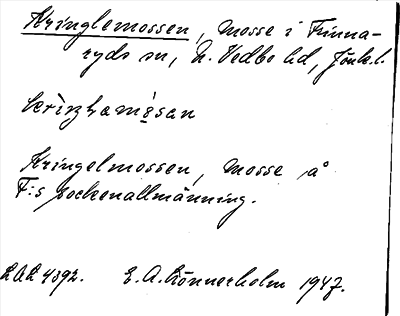 Kringlemossen, mosse i Finna-
ryds sn, N. Vedbo hd, Jönk.l.
Kringelmossen, mosse på
F:s sockenallmänning.
LAL 4392. E. A. Könnerholm 1947.